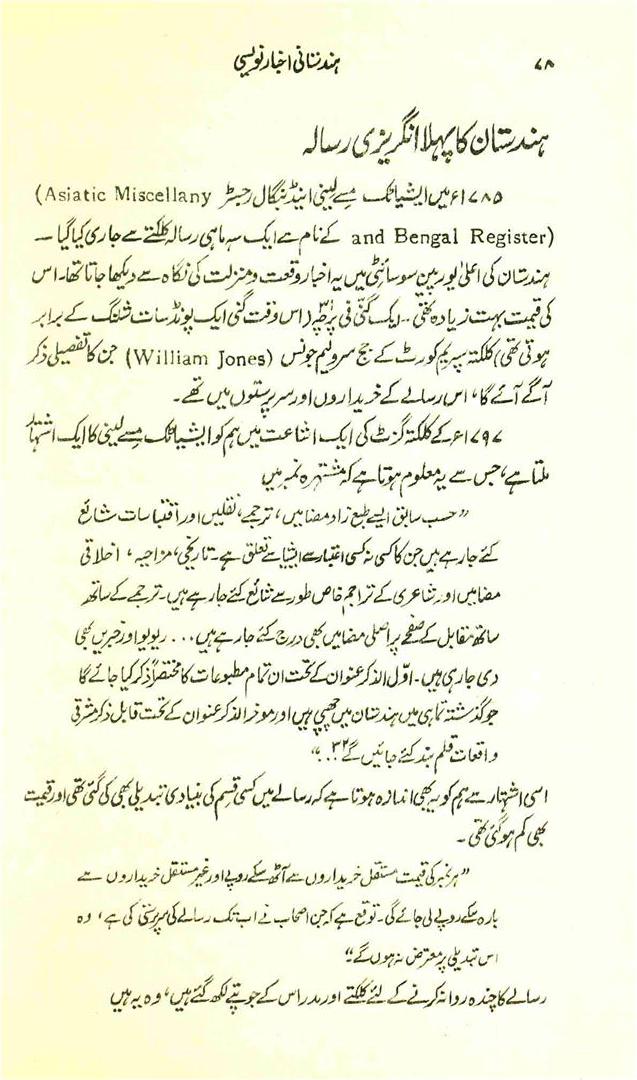 ۷۸ ہندستانی اخبار نویسی
ہندستان کا پہلا انگریزی رسالہ
۱۷۸۵ء میں ایشیاٹک مسے لینی اینڈ بنگال رجسٹر (Asiatic Miscellany
and Bengal Register) کے نام سے ایک سہ ماہی رسالہ کلکتے سے جاری کیا گیا —
ہندستان کی اعلیٰ یورپین سوسائٹی میں یہ اخبار وقعت و منزلت کی نگاہ سے دیکھا جاتا تھا۔ اس
کی قیمت بہت زیادہ تھی۔۔ ایک گنی فی پرچہ (اس وقت گنی ایک پونڈ سات شلنگ کے برابر
ہوتی تھی) کلکتہ سپریم کورٹ کے جج سر ولیم جونس (William Jones) جن کا تفصیلی ذکر
آگے آئے گا، اس رسالے کے خریداروں اور سرپرستوں میں تھے۔
۱۷۹۷ء کے کلکتہ گزٹ کی ایک اشاعت میں ہم کو ایشیاٹک مسے لینی کا ایک اشتہار
ملتا ہے، جس سے یہ معلوم ہوتا ہے کہ مشتہرہ نمبر میں
”حسب سابق ایسے طبع زاد مضامین، ترجمے، نقلیں اور اقتباسات شائع
کئے جا رہے ہیں جن کا کسی نہ کسی اعتبار سے ایشیا سے تعلق ہے۔ تاریخی، مزاحیہ، اخلاقی
مضامین اور شاعری کے تراجم خاص طور سے شائع کئے جا رہے ہیں۔ ترجمے کے ساتھ
ساتھ مقابل کے صفحے پر اصلی مضامین بھی درج کئے جا رہے ہیں... ریویو اور خبریں بھی
دی جا رہی ہیں۔ اوّل الذکر عنوان کے تحت ان تمام مطبوعات کا مختصراً ذکر کیا جائے گا
جو گذشتہ تماہی میں ہندستان میں چھپی ہیں اور موخر الذکر عنوان کے تحت قابل ذکر مشرقی
واقعات قلم بند کئے جائیں گے...“۳۲
اسی اشتہار سے ہم کو یہ بھی اندازہ ہوتا ہے کہ رسالے میں کسی قسم کی بنیادی تبدیلی بھی کی گئی تھی اور قیمت
بھی کم ہو گئی تھی۔
”ہر نمبر کی قیمت مستقل خریداروں سے آٹھ سکے روپے اور غیر مستقل خریداروں سے
بارہ سکے روپے لی جائے گی۔ توقع ہے کہ جن اصحاب نے اب تک رسالے کی سرپرستی کی ہے، وہ
اس تبدیلی پر معترض نہ ہوں گے۔“
رسالے کا چندہ روانہ کرنے کے لئے کلکتے اور مدراس کے جو پتے لکھ گئے ہیں، وہ یہ ہیں